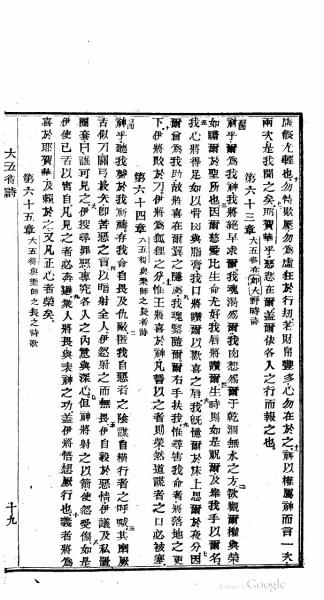 虛假尤輕也勿恃欺壓勿為虛狂於行刼若財帛豐多心勿在於之神以權屬神而言一次
兩次是我聞之矣耶賀華乎慈悲在爾蓋爾依各人之行而報之也
第六十三章 大五得在如大野時詩
神乎爾為我神我將絕早求爾我魂渴慕爾我肉想慕爾于乾涸無水之方欲觀爾權與榮
如睹爾於聖所也因爾慈愛比生命尤好我唇將讚爾生時則如是祝爾及舉我手以爾名
我心將得足如以骨與脂膏我口將讚爾以歡喜之唇我既憶爾於床上思爾於夜分因
爾曾為我助故將喜在爾翼之陰我魂緊隨爾爾右手扶我惟尋害我命者將落地之更
下伊將敗於刀伊將為狐狸之分惟王將喜於神凡誓以之者則榮然道謊者之口必被塞
第六十四章 大五得與樂師之長者詩
神乎聽我聲於我祈禱存我命自畏及仇敵匿我自惡者之陰謀自橫行者之呼喊其磨厥
舌似刀關弓放矢即苦惡之言以暗射全人伊忽射之而無畏伊自毅於惡情伊議及私置
圈套曰誰可見之伊搜尋罪惡專究各人之內意與深心但神將射之以箭使忽受傷如是
伊使己舌以害自凡見之者必奔避衆人將畏與表神之功蓋伊將悟想厥行也義者將為
喜於耶賀華及賴於之又凡正心者榮矣
第六十五章 大五得與樂師之長之詩歌
大五得詩 十九
Google